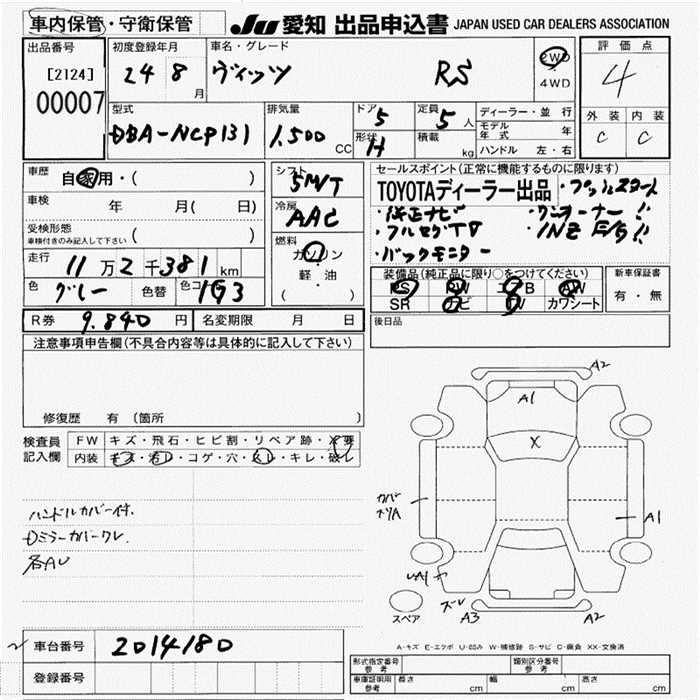 車内保管・守衛保管
JU 愛知 出品申込書 JAPAN USED CAR DEALERS ASSOCIATION
出品番号
[2124]
00007
初度登録年月
24 8 月
車名・グレード
ヴィッツ RS
2WD
4WD
評価点
4
外装 内装
C C
型式
DBA-NCP131
排気量
1,500 CC
ドア 5
形状 H
定員 5 人
積載 kg
ディーラー・並行
モデル年式 年
ハンドル 左・右
車歴
自家用・( )
車検 年 月( 日)
受検形態
車検付きのみ記入して下さい ( )
走行
11万2千381km
色 グレー 色替 色コード 1G3
シフト
5M/T
冷房
AAC
燃料
ガソリン
軽・油
( )
セールスポイント(正常に機能するものに限ります)
TOYOTAディーラー出品 ・プッシュスタート
・純正ナビ ・ワンオーナー!!
・フルセグTV ・1NZ E/G!!
・バックモニター
装備品(純正品に限り○をつけてください)
PS PW エアB AW
SR ナビ TV カワシート
新車保証書
有・無
R券 9.840 円 名変期限 月 日
後日品
注意事項申告欄(不具合内容等は具体的に記入して下さい)
修復歴 有(箇所 )
検査員記入欄
FW キズ・飛石・ヒビ割・リペア跡・X要
内装 キズ・汚レ・コゲ・穴・スレ・キレ・破レ
ハンドルカバー付.
Dミラーカバークレ.
各AU
A2
A1
X
カバー
ズリA
A1
UA1
ズレ
A3
A2
スペア
A-キズ E-エクボ U-凹み W-補修跡 S-サビ C-腐食 XX-交換済
車台番号 2014180
登録番号
形式指定番号 参考
類別区分番号 参考
車庫証明用 参考 長さ cm 幅 cm 高さ cm